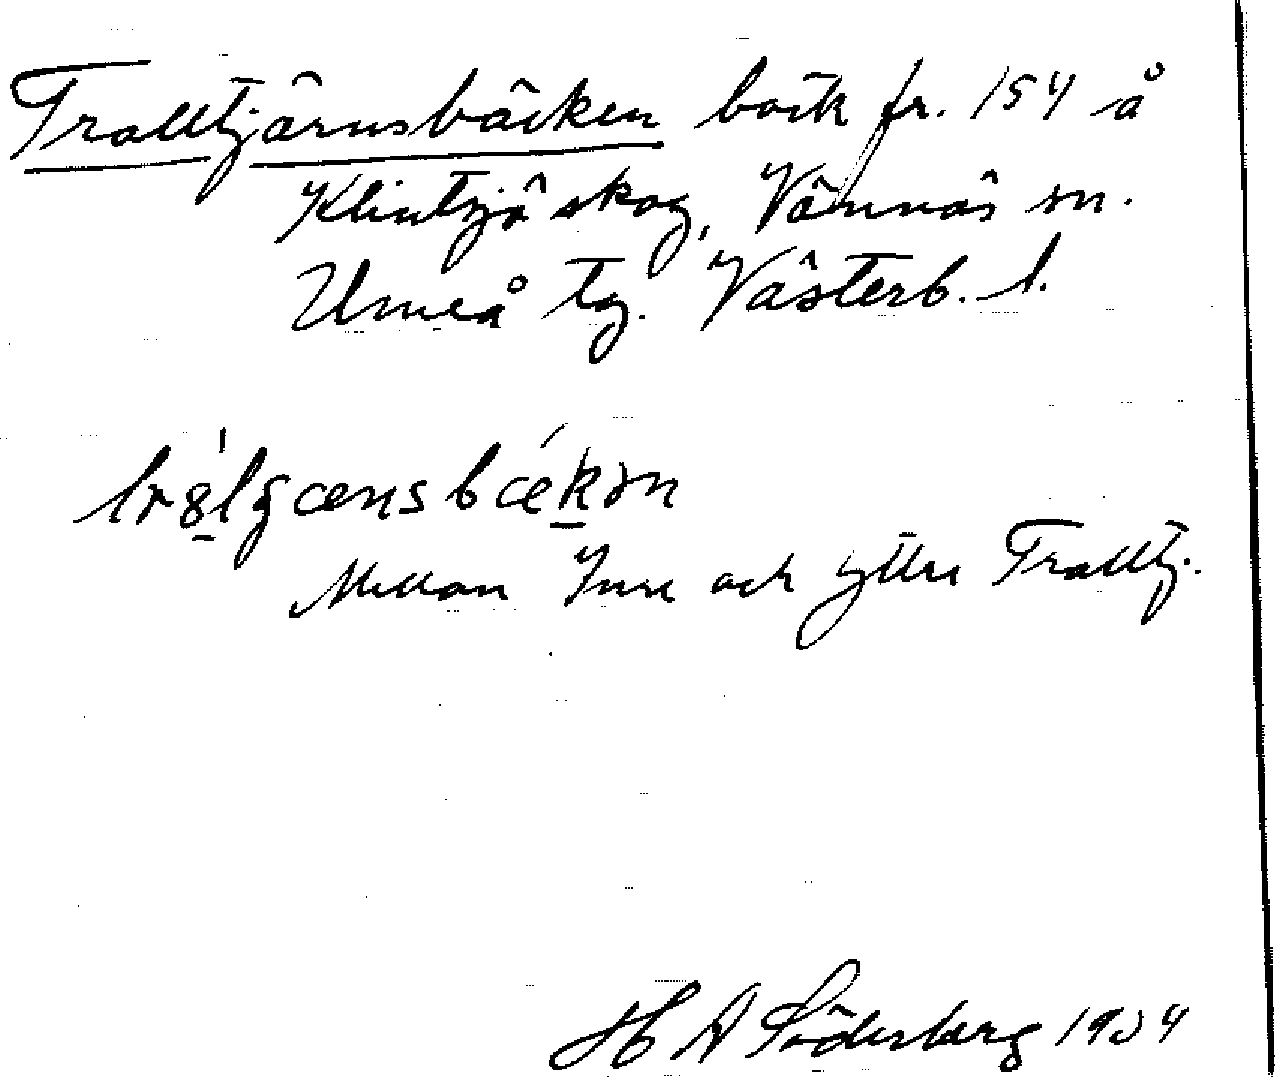 Trolltjärnsbäcken bäck fr. 154 å
Klintsjö skog, Vännäs sn.
Umeå tg. Västerb. l.
Mellan Inre och yttre Trolltj.
H A Söderberg 1934